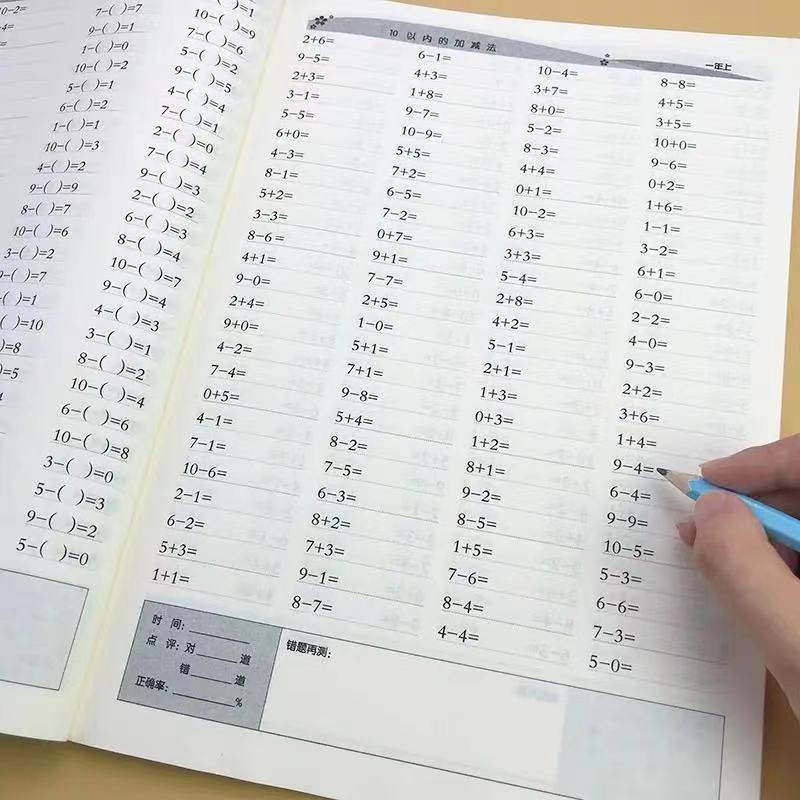 7-( )=7
9-( )=1
1-( )=0
10-( )=2
5-( )=1
6-( )=2
1-( )=1
10-( )=3
4-( )=2
9-( )=9
8-( )=7
10-( )=6
3-( )=2
-( )=7
( )=1
)=10
)=8
)=5
( )=1
10-( )=9
7-( )=6
5-( )=2
9-( )=5
4-( )=4
7-( )=1
2-( )=0
7-( )=4
9-( )=3
2-( )=2
6-( )=3
8-( )=4
10-( )=7
9-( )=4
4-( )=3
3-( )=1
8-( )=2
10-( )=4
6-( )=6
10-( )=8
3-( )=0
5-( )=3
9-( )=2
5-( )=0
10 以内的加减法
一年上
2+6=
9-5=
2+3=
3-1=
5-5=
6+0=
4-3=
8-1=
5+2=
3-3=
8-6=
4+1=
9-0=
2+4=
9+0=
4-2=
7-4=
0+5=
4-1=
7-1=
10-6=
2-1=
6-2=
5+3=
1+1=
6-1=
4+3=
1+8=
9-7=
10-9=
5+5=
7+2=
6-5=
7-2=
0+7=
9+1=
7-7=
2+5=
1-0=
5+1=
7+1=
9-8=
5+4=
8-2=
7-5=
6-3=
8+2=
7+3=
9-1=
8-7=
10-4=
3+7=
8+0=
5-2=
8-3=
4+4=
0+1=
10-2=
6+3=
3+3=
5-4=
2+8=
4+2=
5-1=
2+1=
1+3=
0+3=
1+2=
8+1=
9-2=
8-5=
1+5=
7-6=
8-4=
4-4=
8-8=
4+5=
3+5=
10+0=
9-6=
0+2=
1+6=
1-1=
3-2=
6+1=
6-0=
2-2=
4-0=
9-3=
2+2=
3+6=
1+4=
9-4=
6-4=
9-9=
10-5=
5-3=
6-6=
7-3=
5-0=
时 间：
点 评：对 道
错 道
正确率： %
错题再测：